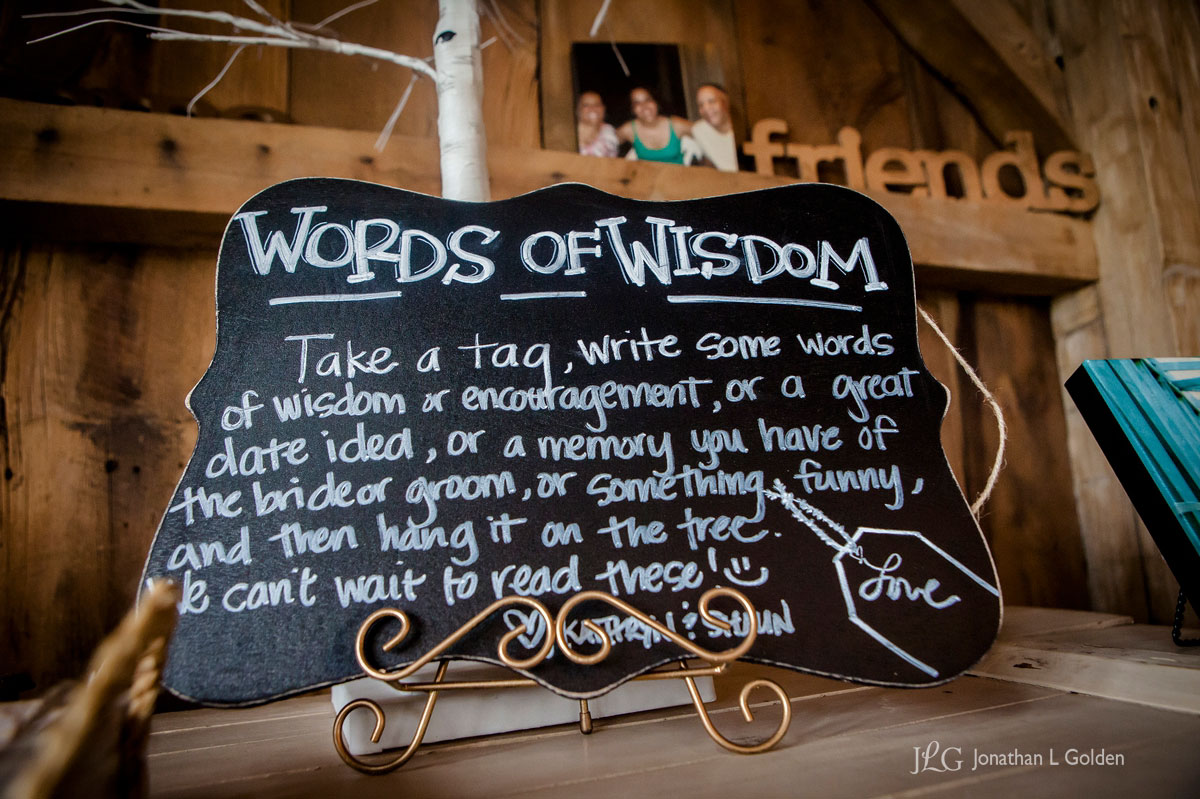 friends
WORDS OF WISDOM
Take a tag, write some words
of wisdom or encouragement, or a great
date idea, or a memory you have of
the bride or groom, or something funny,
and then hang it on the tree.
We can't wait to read these! :)
KATHRYN &
Love
JLG Jonathan L Golden